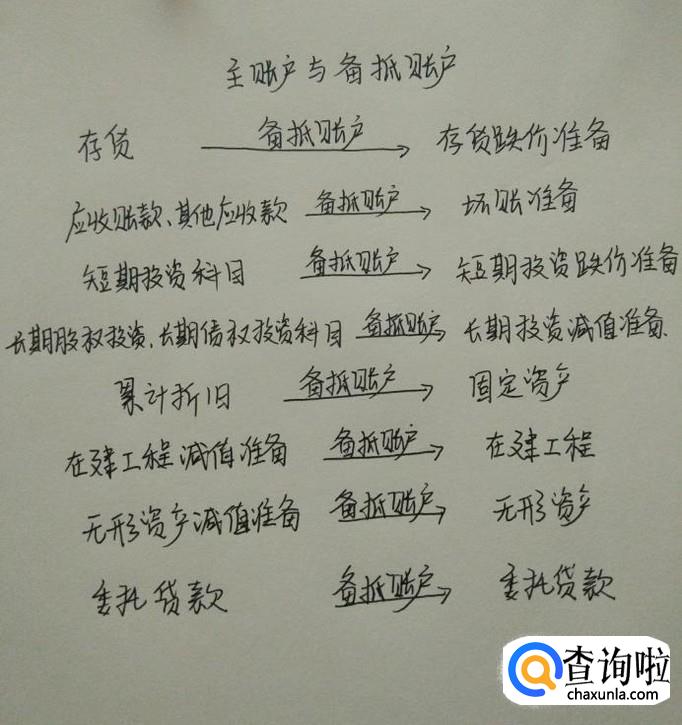 主账户与备抵账户
存货 备抵账户 存货跌价准备
应收账款、其他应收款 备抵账户 坏账准备
短期投资科目 备抵账户 短期投资跌价准备
长期股权投资、长期债权投资科目 备抵账户 长期投资减值准备.
累计折旧 备抵账户 固定资产
在建工程减值准备 备抵账户 在建工程
无形资产减值准备 备抵账户 无形资产
委托贷款 备抵账户 委托贷款
查询啦
chaxunla.com